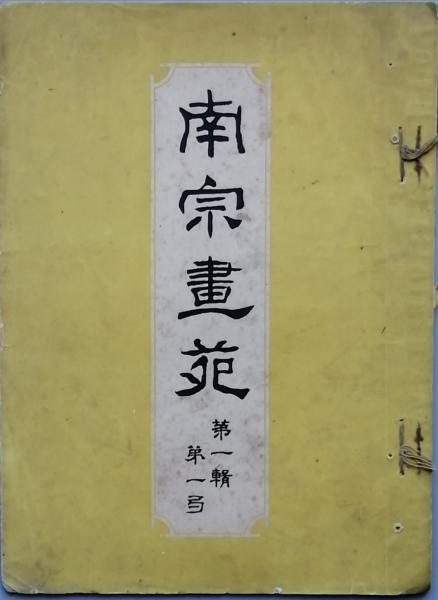 南宗畫苑
第一輯
第一弓